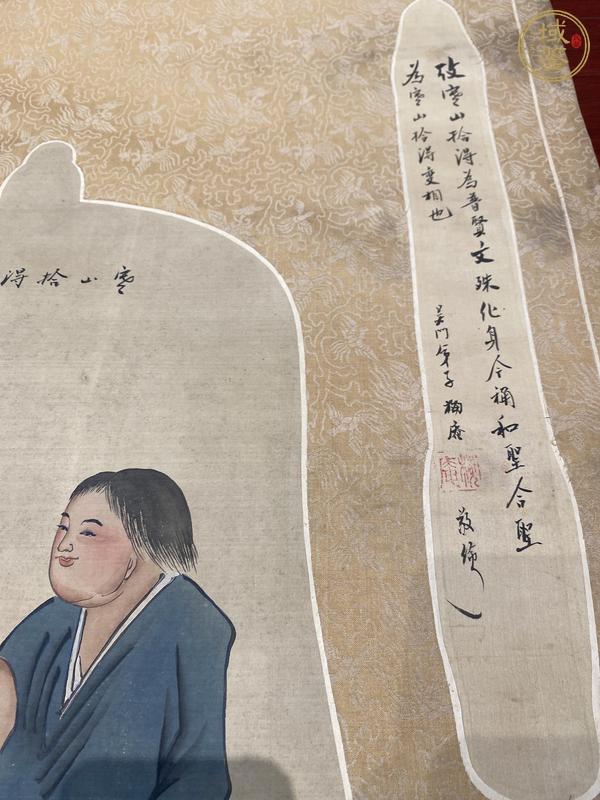 攷寒山拾得為普賢文殊化身今稱和聖合聖
為寒山拾得變相也
吴門弟子
庵
敬
寒山拾得
域鉴